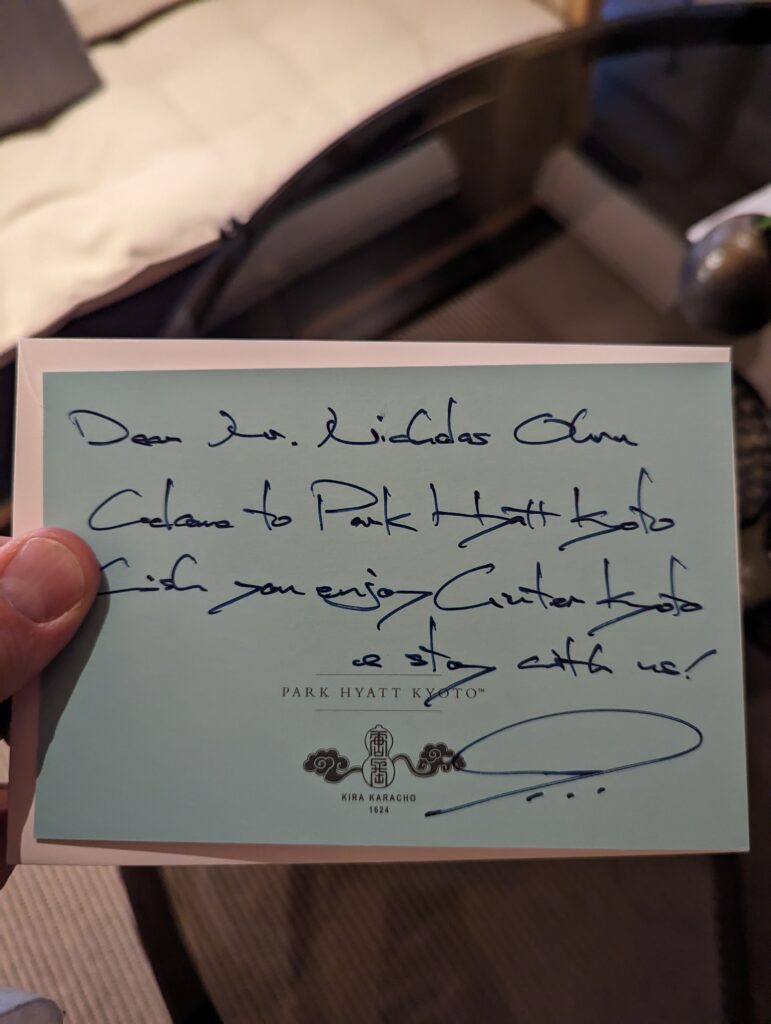 Dear Mr. Nicholas
Welcome to Park Hyatt Kyoto
Wish you enjoy Winter Kyoto
& stay with us!
PARK HYATT KYOTO™
唐長
KIRA KARACHO
1624